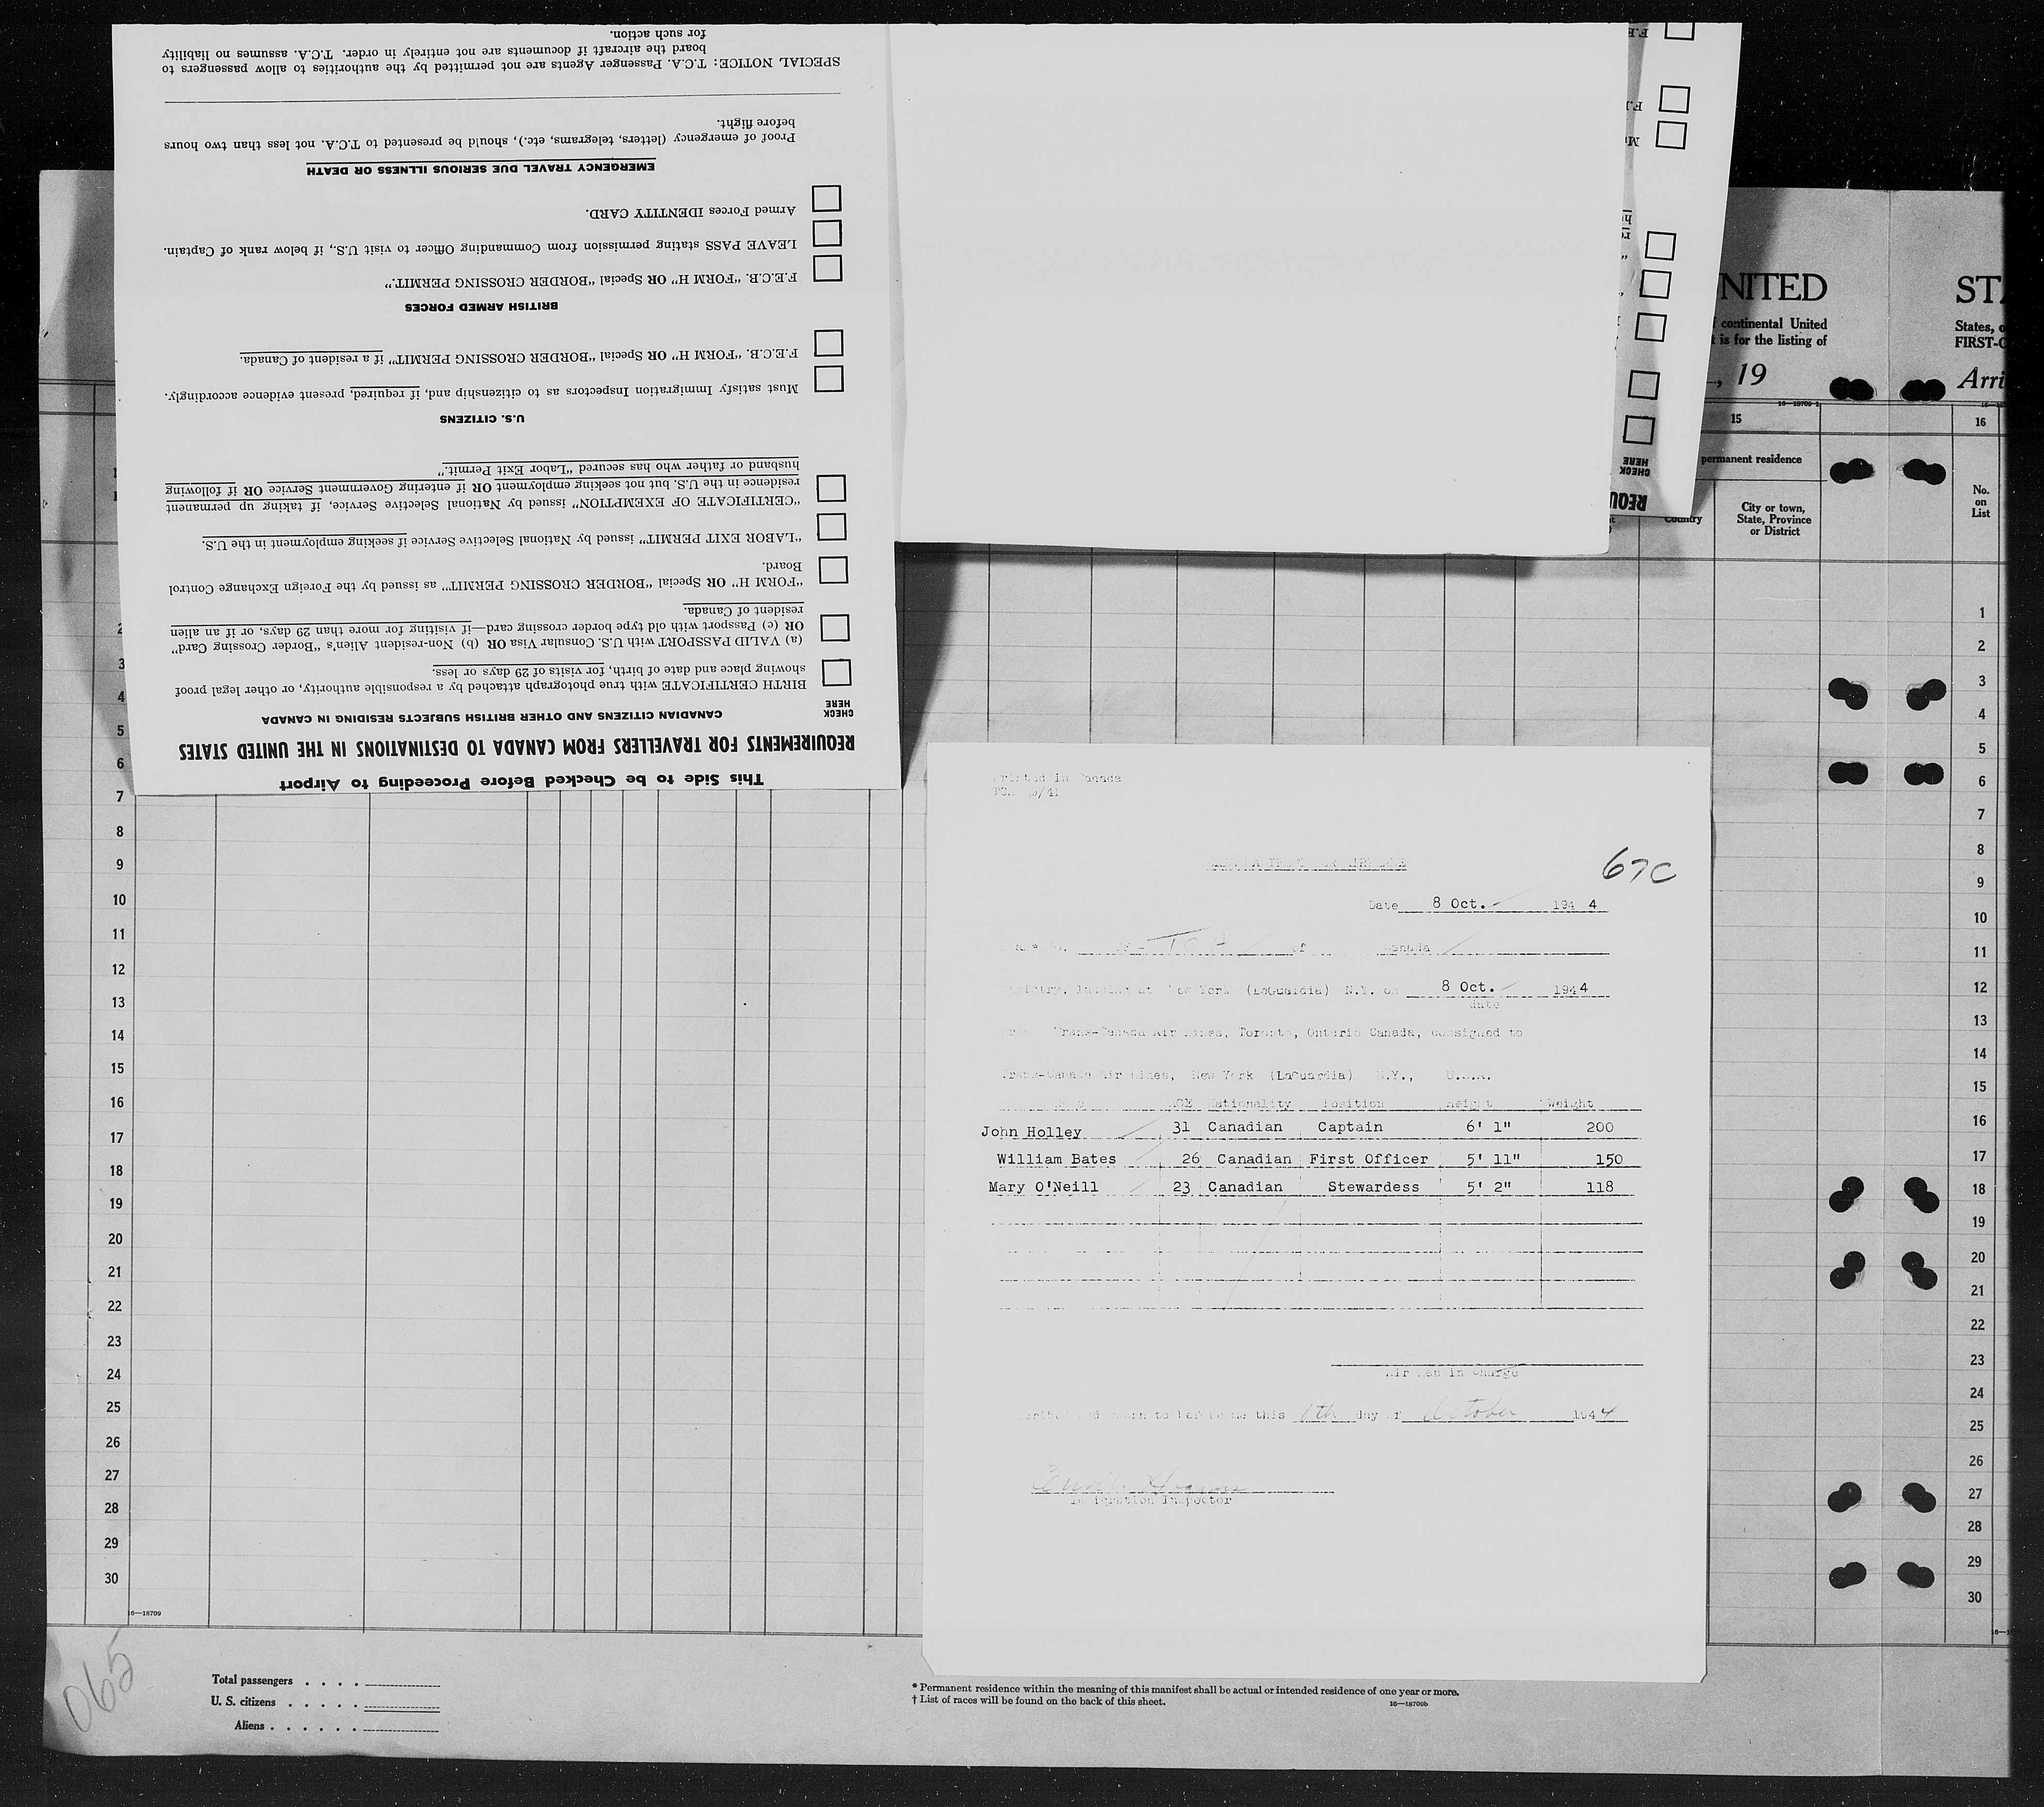 This Side to be Checked Before Proceeding to Airport
REQUIREMENTS FOR TRAVELLERS FROM CANADA TO DESTINATIONS IN THE UNITED STATES
CHECK
HERE
CANADIAN CITIZENS AND OTHER BRITISH SUBJECTS RESIDING IN CANADA
BIRTH CERTIFICATE with true photograph attached by a responsible authority, or other legal proof
showing place and date of birth, for visits of 29 days or less.
(a) VALID PASSPORT with U.S. Consular Visa OR (b) Non-resident Alien's "Border Crossing Card"
OR (c) Passport with old type border crossing card—if visiting for more than 29 days, or if an alien
resident of Canada.
"FORM H" OR Special "BORDER CROSSING PERMIT" as issued by the Foreign Exchange Control
Board.
"LABOR EXIT PERMIT" issued by National Selective Service if seeking employment in the U.S.
"CERTIFICATE OF EXEMPTION" issued by National Selective Service, if taking up permanent
residence in the U.S. but not seeking employment OR if entering Government Service OR if following
husband or father who has secured "Labor Exit Permit."
U.S. CITIZENS
Must satisfy Immigration Inspectors as to citizenship and, if required, present evidence accordingly.
F.E.C.B. "FORM H" OR Special "BORDER CROSSING PERMIT" if a resident of Canada.
BRITISH ARMED FORCES
F.E.C.B. "FORM H" OR Special "BORDER CROSSING PERMIT."
LEAVE PASS stating permission from Commanding Officer to visit U.S., if below rank of Captain.
Armed Forces IDENTITY CARD.
EMERGENCY TRAVEL DUE SERIOUS ILLNESS OR DEATH
Proof of emergency (letters, telegrams, etc.), should be presented to T.C.A. not less than two hours
before flight.
SPECIAL NOTICE: T.C.A. Passenger Agents are not permitted by the authorities to allow passengers to
board the aircraft if documents are not entirely in order. T.C.A. assumes no liability
for such action.
REQU
CHECK
HERE
NITED
continental United
is for the listing of
, 19
16—18709-1
15
permanent residence
Country
City or town,
State, Province
or District
STA
States, o
FIRST-C
Arri
16
No.
on
List
1
2
3
4
5
6
7
8
9
10
11
12
13
14
15
16
17
18
19
20
21
22
23
24
25
26
27
28
29
30
2
3
4
5
6
7
8
9
10
11
12
13
14
15
16
17
18
19
20
21
22
23
24
25
26
27
28
29
30
16—18709
065
Total passengers . . . .
U. S. citizens . . . . .
Aliens . . . . . .
Printed in Canada
67C
Date 8 Oct. 1944
TCA of Canada
Landing at New York (LaGuardia) N.Y. on 8 Oct. 1944
date
Trans-Canada Air Lines, Toronto, Ontario Canada, consigned to
Trans-Canada Air Lines, New York (LaGuardia) N.Y., U.S.A.
Name AGE Nationality Position Height Weight
John Holley 31 Canadian Captain 6' 1" 200
William Bates 26 Canadian First Officer 5' 11" 150
Mary O'Neill 23 Canadian Stewardess 5' 2" 118
Air Man in Charge
sworn to before me this 8th day of October 1944
Immigration Inspector
* Permanent residence within the meaning of this manifest shall be actual or intended residence of one year or more.
† List of races will be found on the back of this sheet.
16—18709b